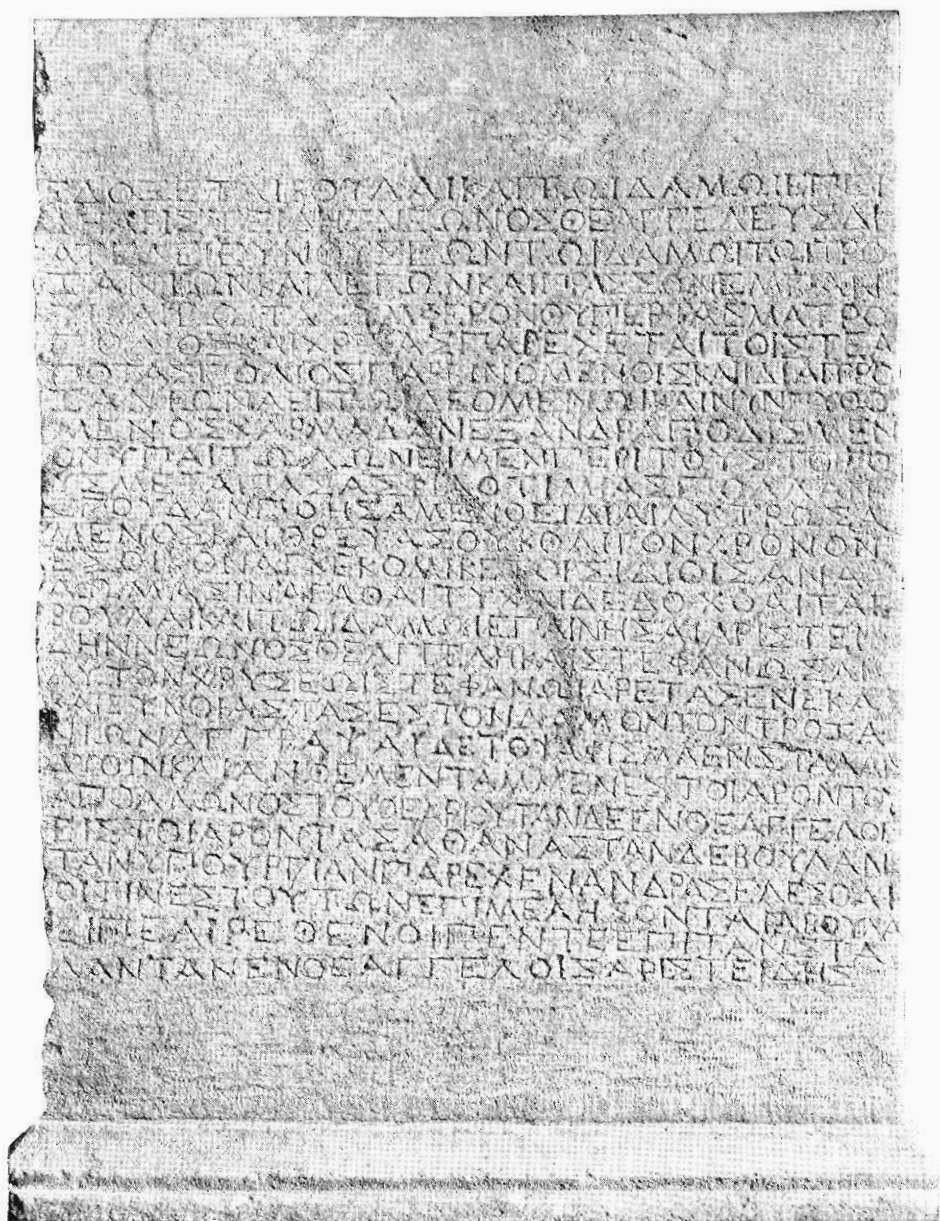 ΕΔΟΞΕΤΑΙΒΟΥΛΑΙΚΑΙΤΩΙΔΑΜΩΙΕΠΕΙ
ΔΗΑΡΙΣΤΕΙΔΗΣΝΕΩΝΟΣΘΕΑΓΓΕΛΕΥΣΔΙ
ΑΤΕΛΕΙΕΥΝΟΥΣΕΩΝΤΩΙΔΑΜΩΙΤΩΙΤΡΟ
ΖΑΝΙΩΝΚΑΙΛΕΓΩΝΚΑΙΠΡΑΣΣΩΝΕΜΠΑΝ
ΤΙΚΑΙΡΩΙΤΑΣΥΜΦΕΡΟΝΘΥΠΕΡΤΑΣΜΑΤΡΟ
ΠΟΛΙΟΣΚΑΙΧΡΕΙΑΣΠΑΡΕΧΕΤΑΙΤΟΙΣΤΕΑ
ΠΟΤΑΣΠΟΛΙΟΣΠΑΡΓΙΝΟΜΕΝΟΙΣΚΑΙΙΔΙΑΙΤΡΟ
ΖΑΝΙΩΝΑΕΙΤΩΙΔΕΟΜΕΝΩΙΚΑΙΝΥΝΠΥΘΟ
ΜΕΝΟΣΧΑΡΜΑΔΑΝΕΞΑΝΔΡΑΠΟΔΙΣΜΕΝ
ΟΝΥΠΑΙΤΩΛΩΝΕΙΜΕΝΠΕΡΙΤΟΥΣΤΟΠΟ
ΥΣΜΕΤΑΠΑΣΑΣΦΙΛΟΤΙΜΙΑΣΠΟΛΛΑΝ
ΣΠΟΥΔΑΝΠΟΗΣΑΜΕΝΟΣΙΔΙΑΙΛΥΤΡΩΣΑ
ΜΕΝΟΣΚΑΙΘΡΕΨΑΣΟΥΚΟΛΙΓΟΝΧΡΟΝΟΝ
ΑΓΚΕΚΟΜΙΚΕΤΟΙΣΙΔΙΟΙΣΑΝΑ
ΛΩΜΑΣΙΝΑΓΑΘΑΙΤΥΧΑΙΔΕΔΟΧΘΑΙΤΑΙ
ΒΟΥΛΑΙΚΑΙΤΩΙΔΑΜΩΙΕΠΑΙΝΗΣΑΙΑΡΙΣΤΕΙ
ΔΗΝΝΕΩΝΟΣΘΕΑΓΓΕΛΗΚΑΙΣΤΕΦΑΝΩΣΑΙ
ΑΥΤΟΝΧΡΥΣΕΩΙΣΤΕΦΑΝΩΙΑΡΕΤΑΣΕΝΕΚΑ
ΚΑΙΕΥΝΟΙΑΣΤΑΣΕΣΤΟΝΔΑΜΟΝΤΟΝΤΡΟΖΑ
ΝΙΩΝΑΓΓΡΑΨΑΙΔΕΤΟΨΑΦΙΣΜΑΕΝΣΤΑΛΑΙΝ
ΛΙΘΟΙΝΚΑΙΑΝΘΕΜΕΝΤΑΜΜΕΝΕΣΤΟΙΑΡΟΝΤΟΥ
ΑΠΟΛΛΩΝΟΣΤΟΥΘΕΑΡΙΟΥΤΑΝΔΕΕΝΘΕΑΓΓΕΛΟΙ
ΕΙΣΤΟΙΑΡΟΝΤΑΣΑΘΑΝΑΣΤΑΝΔΕΒΟΥΛΑΝ
ΤΑΝΥΠΟΥΡΓΙΑΝΠΑΡΕΧΕΝΑΝΔΡΑΣΕΛΕΣΘΑΙ
ΟΙΤΙΝΕΣΤΟΥΤΩΝΕΠΙΜΕΛΗΣΟΝΤΑΙΑΒΟΥΛΑ
ΕΙΠΕΑΙΡΕΘΕΝΟΙΠΕΝΤΕΕΠΙΤΑΝΣΤΑ
ΛΑΝΤΑΝΕΝΘΕΑΓΓΕΛΟΙΣΑΡΙΣΤΕΙΔΗΣ